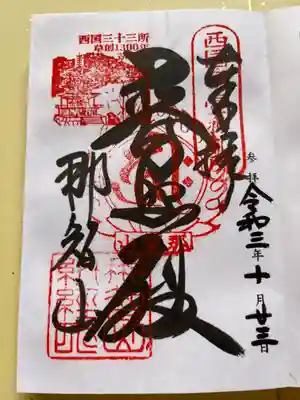 奉拝
参拝 令和三年十月廿三日
普照殿
那智山
西国三十三所
草創1300年
那